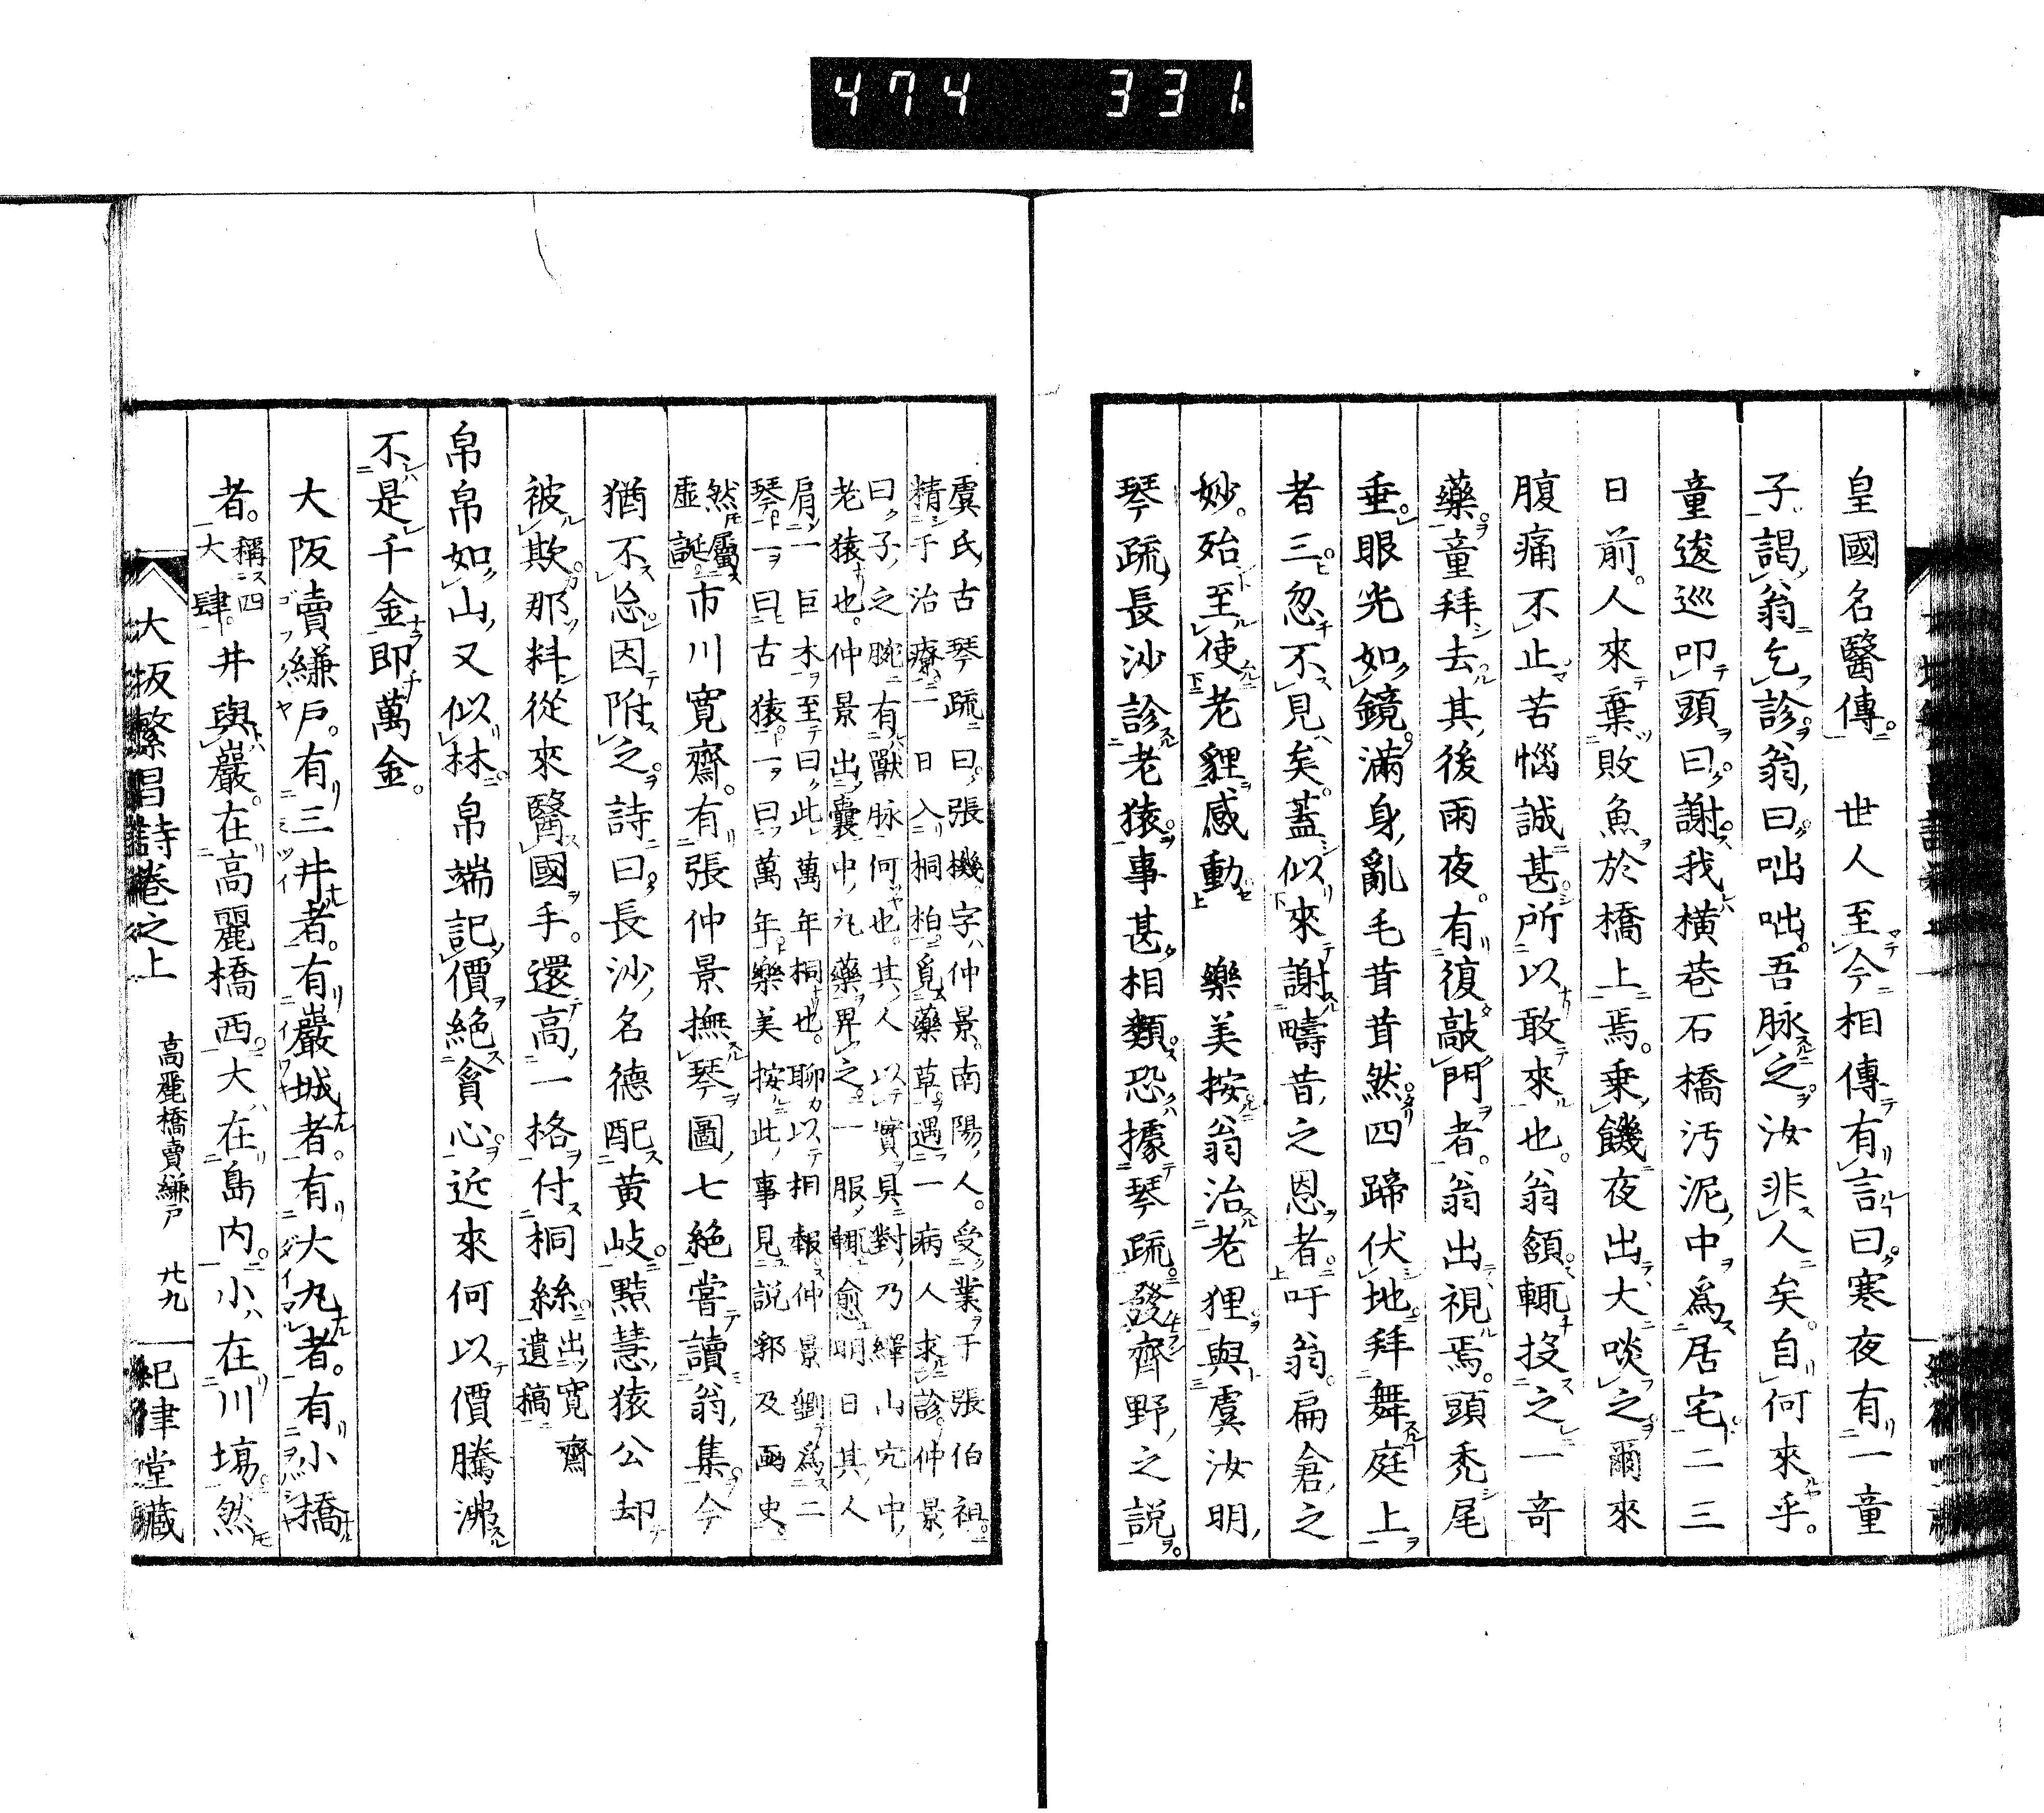 474 331
皇國名醫傳。 世人至今相傳有言曰。寒夜有一童
子。謁翁乞診。翁曰。咄咄。吾脉之。汝非人矣。自何來乎。
童逡巡叩頭曰。謝。我橫巷石橋汚泥中爲居宅。二三
日前。人來棄敗魚於橋上焉。乗饑夜出大啖之。爾來
腹痛不止。苦惱誠甚。所以敢來也。翁頷。輒投之一奇
藥。童拜去。其後雨夜。有復敲門者。翁出視焉。頭禿尾
垂。眼光如鏡。滿身亂毛茸茸然。四蹄伏地。拜舞庭上
者三。忽不見矣。蓋似來謝疇昔之恩者。吁翁。扁倉之
妙。殆至使老貍感動 樂美按。翁治老狸。與虞汝明
琴疏。長沙診老猿。事甚相類。恐據琴疏。發齊野之説。
虞氏古琴疏曰。張機字仲景。南陽人。受業于張伯祖。
精于治療。一日入桐柏。覓藥草。遇一病人求診。仲景
曰。子之腕有獸脉何也。其人以實具對。乃繹山穴中
老猿也。仲景出囊中丸藥畀之。一服輒愈。明日其人
肩一巨木至曰。此萬年桐也。聊以相報。仲景劉爲二
琴。一曰古猿。一曰萬年。樂美按。此事見説郛及画史。
然屬
虛誕。市川寬齋。有張仲景撫琴圖七絶。嘗讀翁集。今
猶不忘。因附之。詩曰。長沙名德配黄岐。黠慧猿公却
被欺。那料從來醫國手。還高一格付桐絲。出寬齋
遺稿
帛帛如山又似林。帛端記價絶貪心。近來何以價騰沸
不是千金即萬金。
大阪賣縑戸。有三井者。有巖城者。有大丸者。有小橋
者。稱四
大肆。井與巖。在高麗橋西。大在島内。小在川塲。然
大坂繁昌詩卷之上 高麗橋賣縑戸 廿九 紀律堂藏